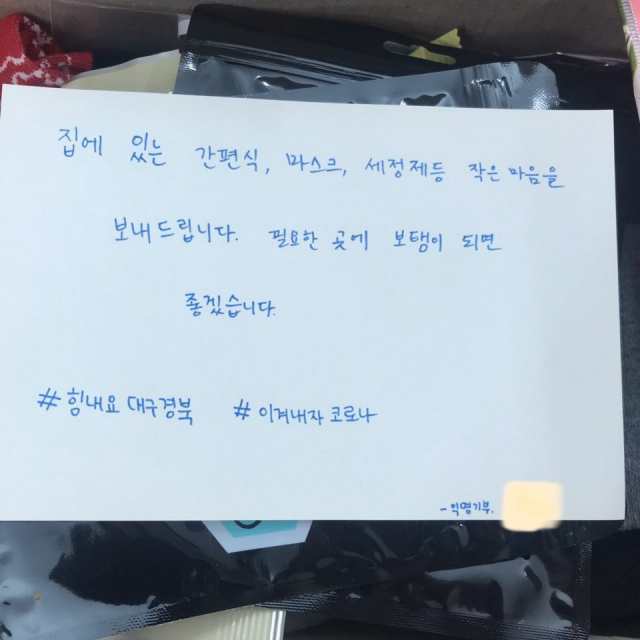 집에 있는 간편식, 마스크, 세정제등 작은 마음을
보내드립니다. 필요한 곳에 보탬이 되면
좋겠습니다.
# 힘내요 대구경북 # 이겨내자 코로나
- 익명기부.